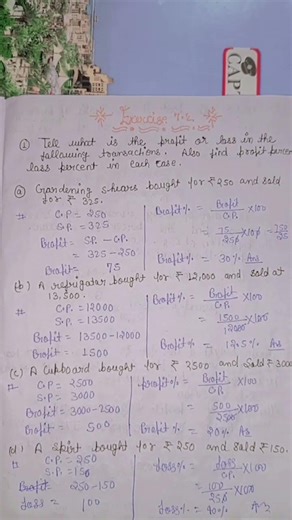 CAP
Exercise 7.2
① Tell what is the profit or loss in the
following transactions. Also find profit percent
loss percent in each case.
(a) Gardening shears bought for ₹250 and sold
for ₹ 325.
C.P. = 250
S.P. = 325
Profit = S.P. - C.P.
= 325 - 250
Profit = 75
Profit % = Profit/C.P. × 100
= 75/250 × 100 = 750/25
Profit % = 30% Ans
(b) A refrigater bought for ₹ 12,000 and sold at
13,500.
C.P. = 12000
S.P. = 13500
Profit = 13500 - 12000
Profit = 1500
Profit % = Profit/C.P. × 100
= 1500/12000 × 100
Profit % = 12.5% Ans
(c) A Cupboard bought for ₹ 2500 and Sold ₹ 3000
C.P = 2500
S.P = 3000
Profit = 3000 - 2500
Profit = 500
Profit % = Profit/C.P. × 100
= 500/2500 × 100
Profit % = 20% As
(d) A Skirt bought for ₹ 250 and sold ₹150.
C.P. = 250
S.P. = 150
Profit = 250 - 150
Loss = 100
Loss % = Loss/C.P. × 100
= 100/250 × 100
Loss % = 40%